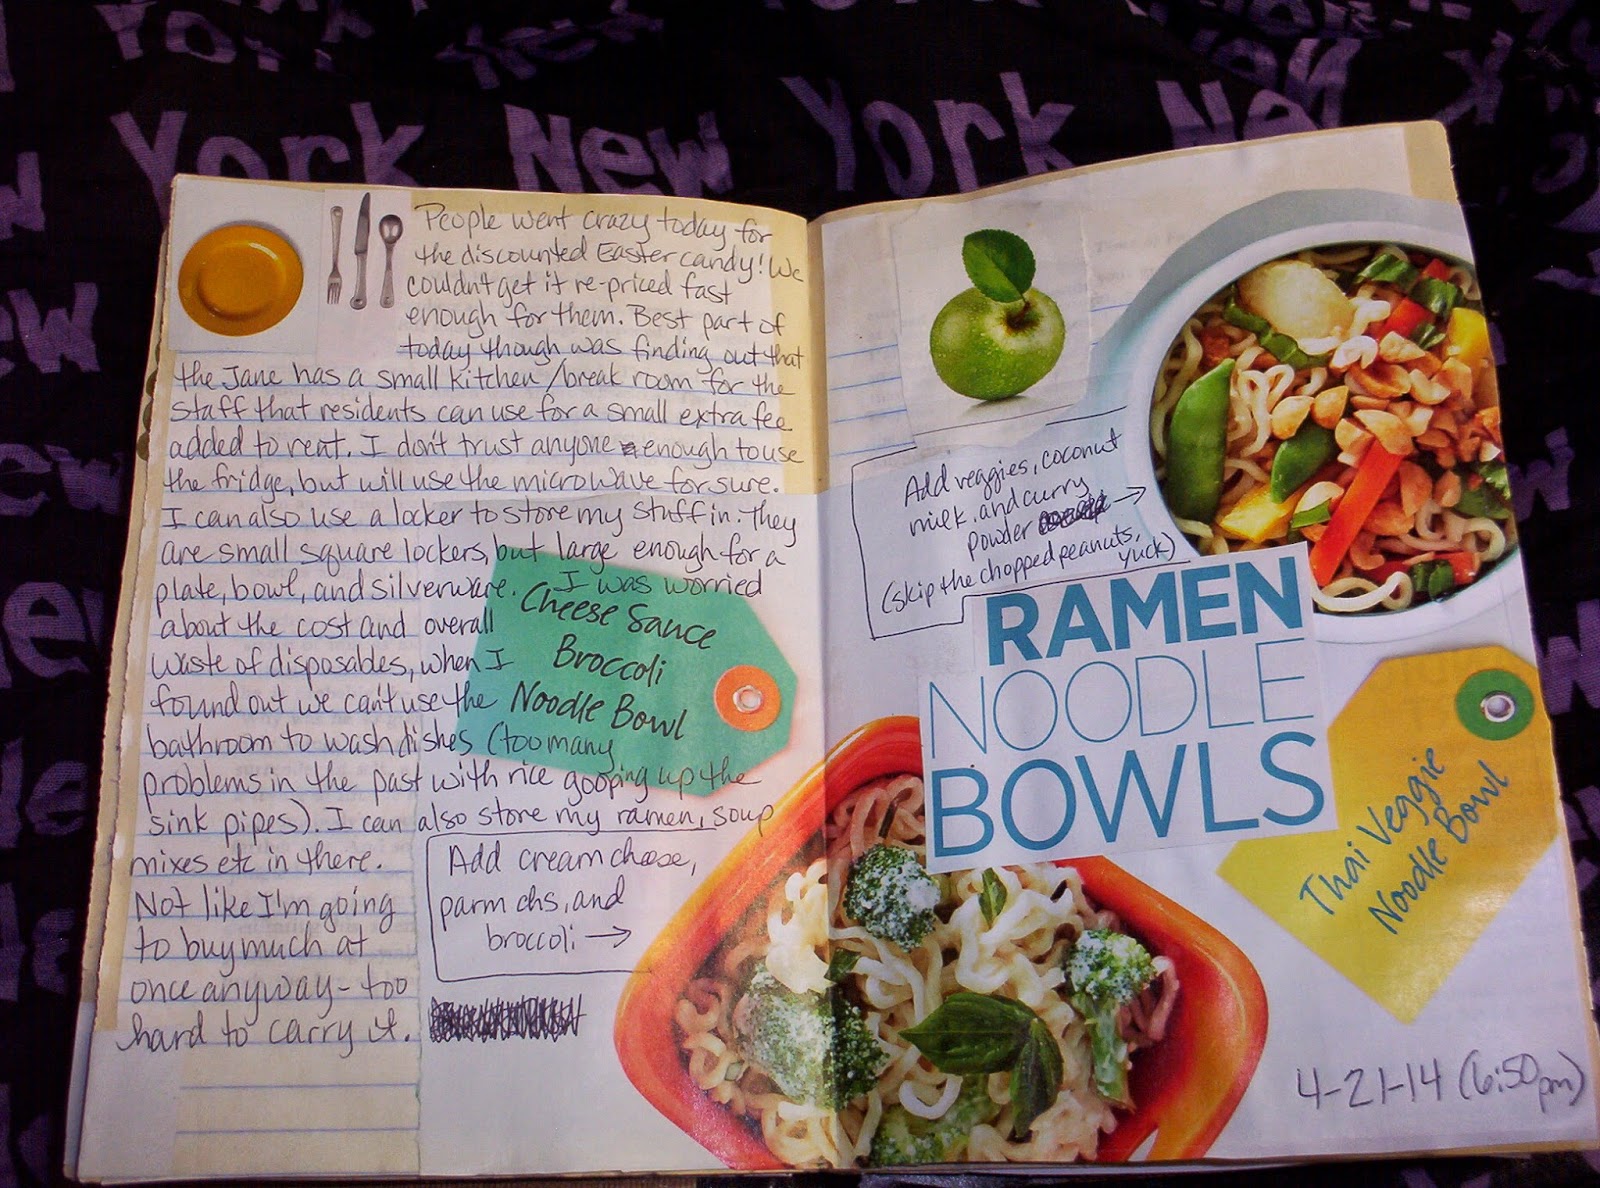 York New York New
People went crazy today for
the discounted Easter candy! We
couldn't get it re-priced fast
enough for them. Best part of
today though was finding out that
the Jane has a small kitchen/break room for the
staff that residents can use for a small extra fee
added to rent. I don't trust anyone enough to use
the fridge, but will use the microwave for sure.
I can also use a locker to store my stuff in. They
are small square lockers, but large enough for a
plate, bowl, and silverware. I was worried
about the cost and overall
waste of disposables, when I
found out we can't use the
bathroom to wash dishes (too many
problems in the past with rice gooping up the
sink pipes). I can also store my ramen, soup
mixes etc in there.
Not like I'm going
to buy much at
once anyway - too
hard to carry it.
Cheese Sauce
Broccoli
Noodle Bowl
Add cream cheese,
parm chs, and
broccoli →
Add veggies, coconut
milk, and curry
powder →
(skip the chopped peanuts,
yuck)
RAMEN
NOODLE
BOWLS
Thai Veggie
Noodle Bowl
4-21-14 (6:50
pm)